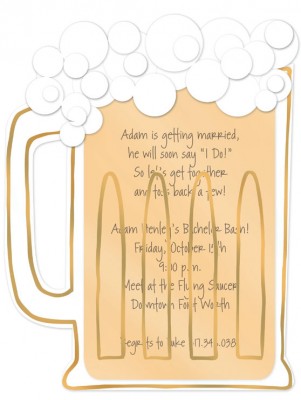 Adam is getting married,
he will soon say "I Do!"
So let's get together
and toss back a few!
Adam Henley's Bachelor Bash!
Friday, October 15th
9:00 p.m.
Meet at the Flying Saucer
Downtown Fort Worth
Regrets to Jake